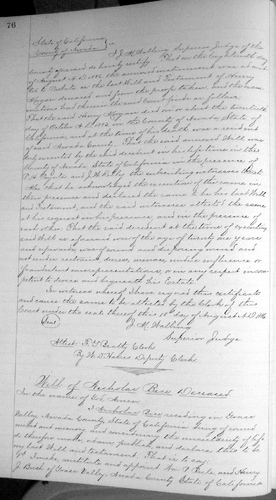 76
State of California
County of Nevada } ss
I J. M. Walling Superior Judge of the
County aforesaid do hereby certify That on the eighteenth day
of August A.D. 1886 the annexed instrument was admit-
ted to Probate as the last Will and Testament of Henry
Hogan deceased and from the proofs taken and the exam-
ination had therein the said Court finds as follows
That the said Henry Hogan died on or about the
day of October A.D. 1882 in the County of Nevada State of
California, and at the time of his death was a resident
of said Nevada County. That the said annexed Will was
by the said decedent in his lifetime in the
County of Nevada State of California in the presence of
and the subscribing witnesses there-
to. That he acknowledged the execution of the same in
their presence and declared the same to be his last Will
and Testament, and the said witnesses attested the same
at his request in his presence, and in the presence of
each other. That the said decedent at the time of executing
said Will as aforesaid was of the age of twenty one years
and upwards, was of sound and disposing mind, and
not under restraint, duress, menace, undue influence or
fraudulent misrepresentations, or in any respect incom-
petent to devise and bequeath his Estate.
In witness whereof I have signed this certificate
and caused the same to be attested by the Clerk of this
Court under the seal thereof this 18th day of August A.D. 1886
Seal
J. M. Walling
Superior Judge
Attest Clerk
By Deputy Clerk
Will of Nicholas Deceased
In the name of God Amen
I Nicholas residing in Grass
Valley Nevada County State of California being of sound
mind and memory and the uncertainty of life
do therefor make ordain publish and declare this to be
my last Will and testament. That is to say
1st I nominate and appoint and Henry
J. of Grass Valley Nevada County State of California